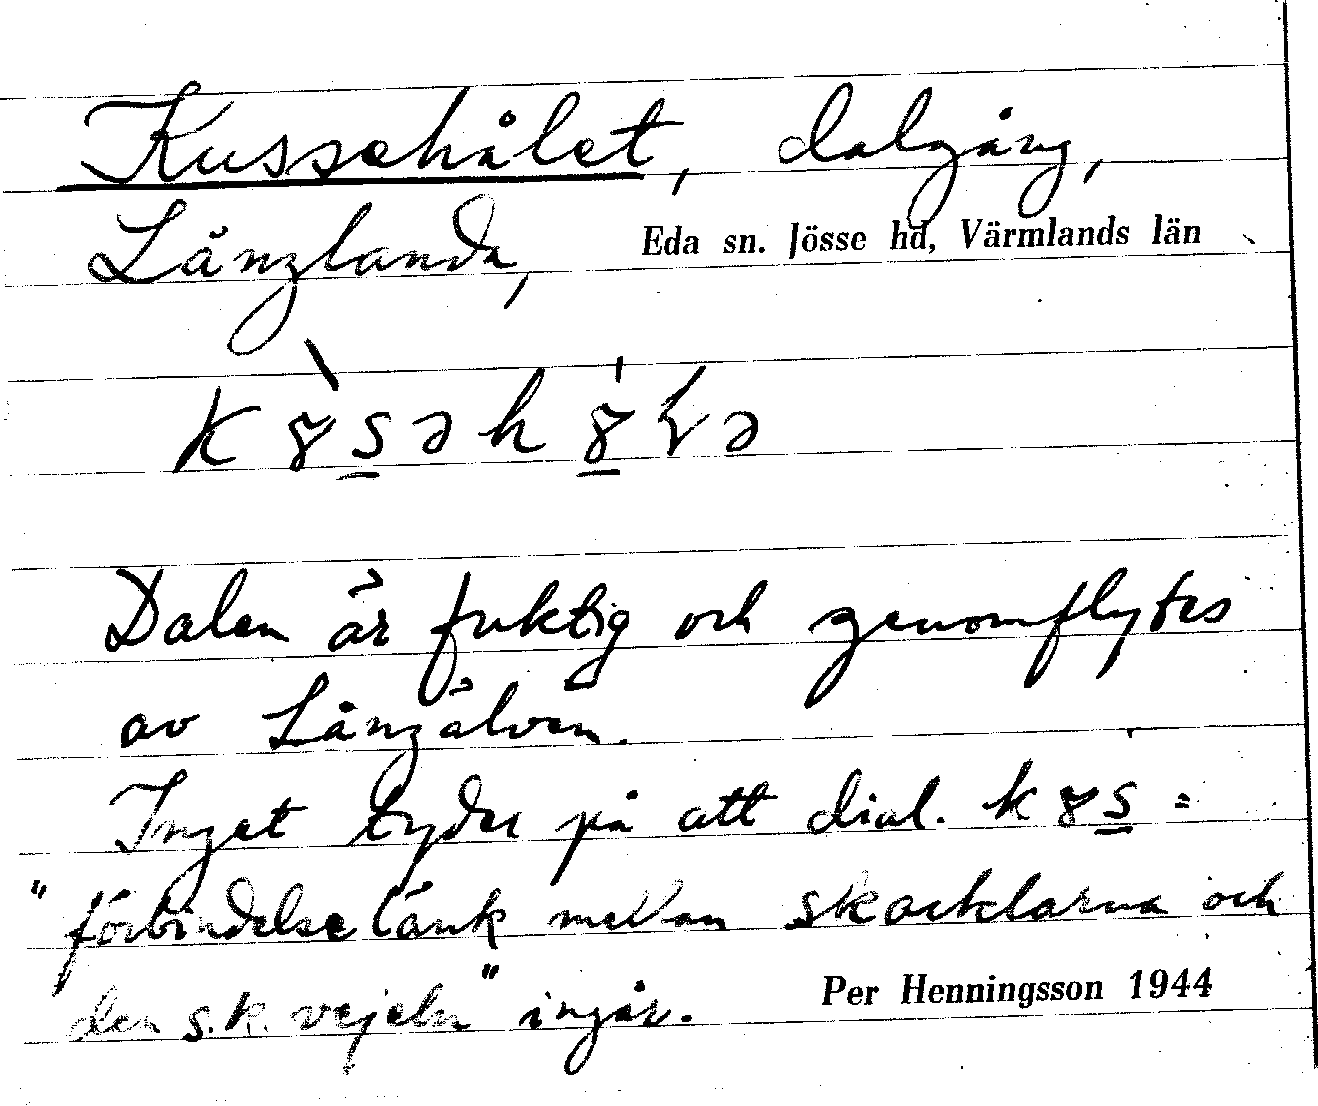 Kussehålet, dalgång,
Långlanda, Eda sn. Jösse hd, Värmlands län
Dalen är fuktig och genomflytes
av Långälven.
Inget tyder på att dial.
"förbindelselänk mellan skacklarna och
den s.k. vejeln" ingår.
Per Henningsson 1944